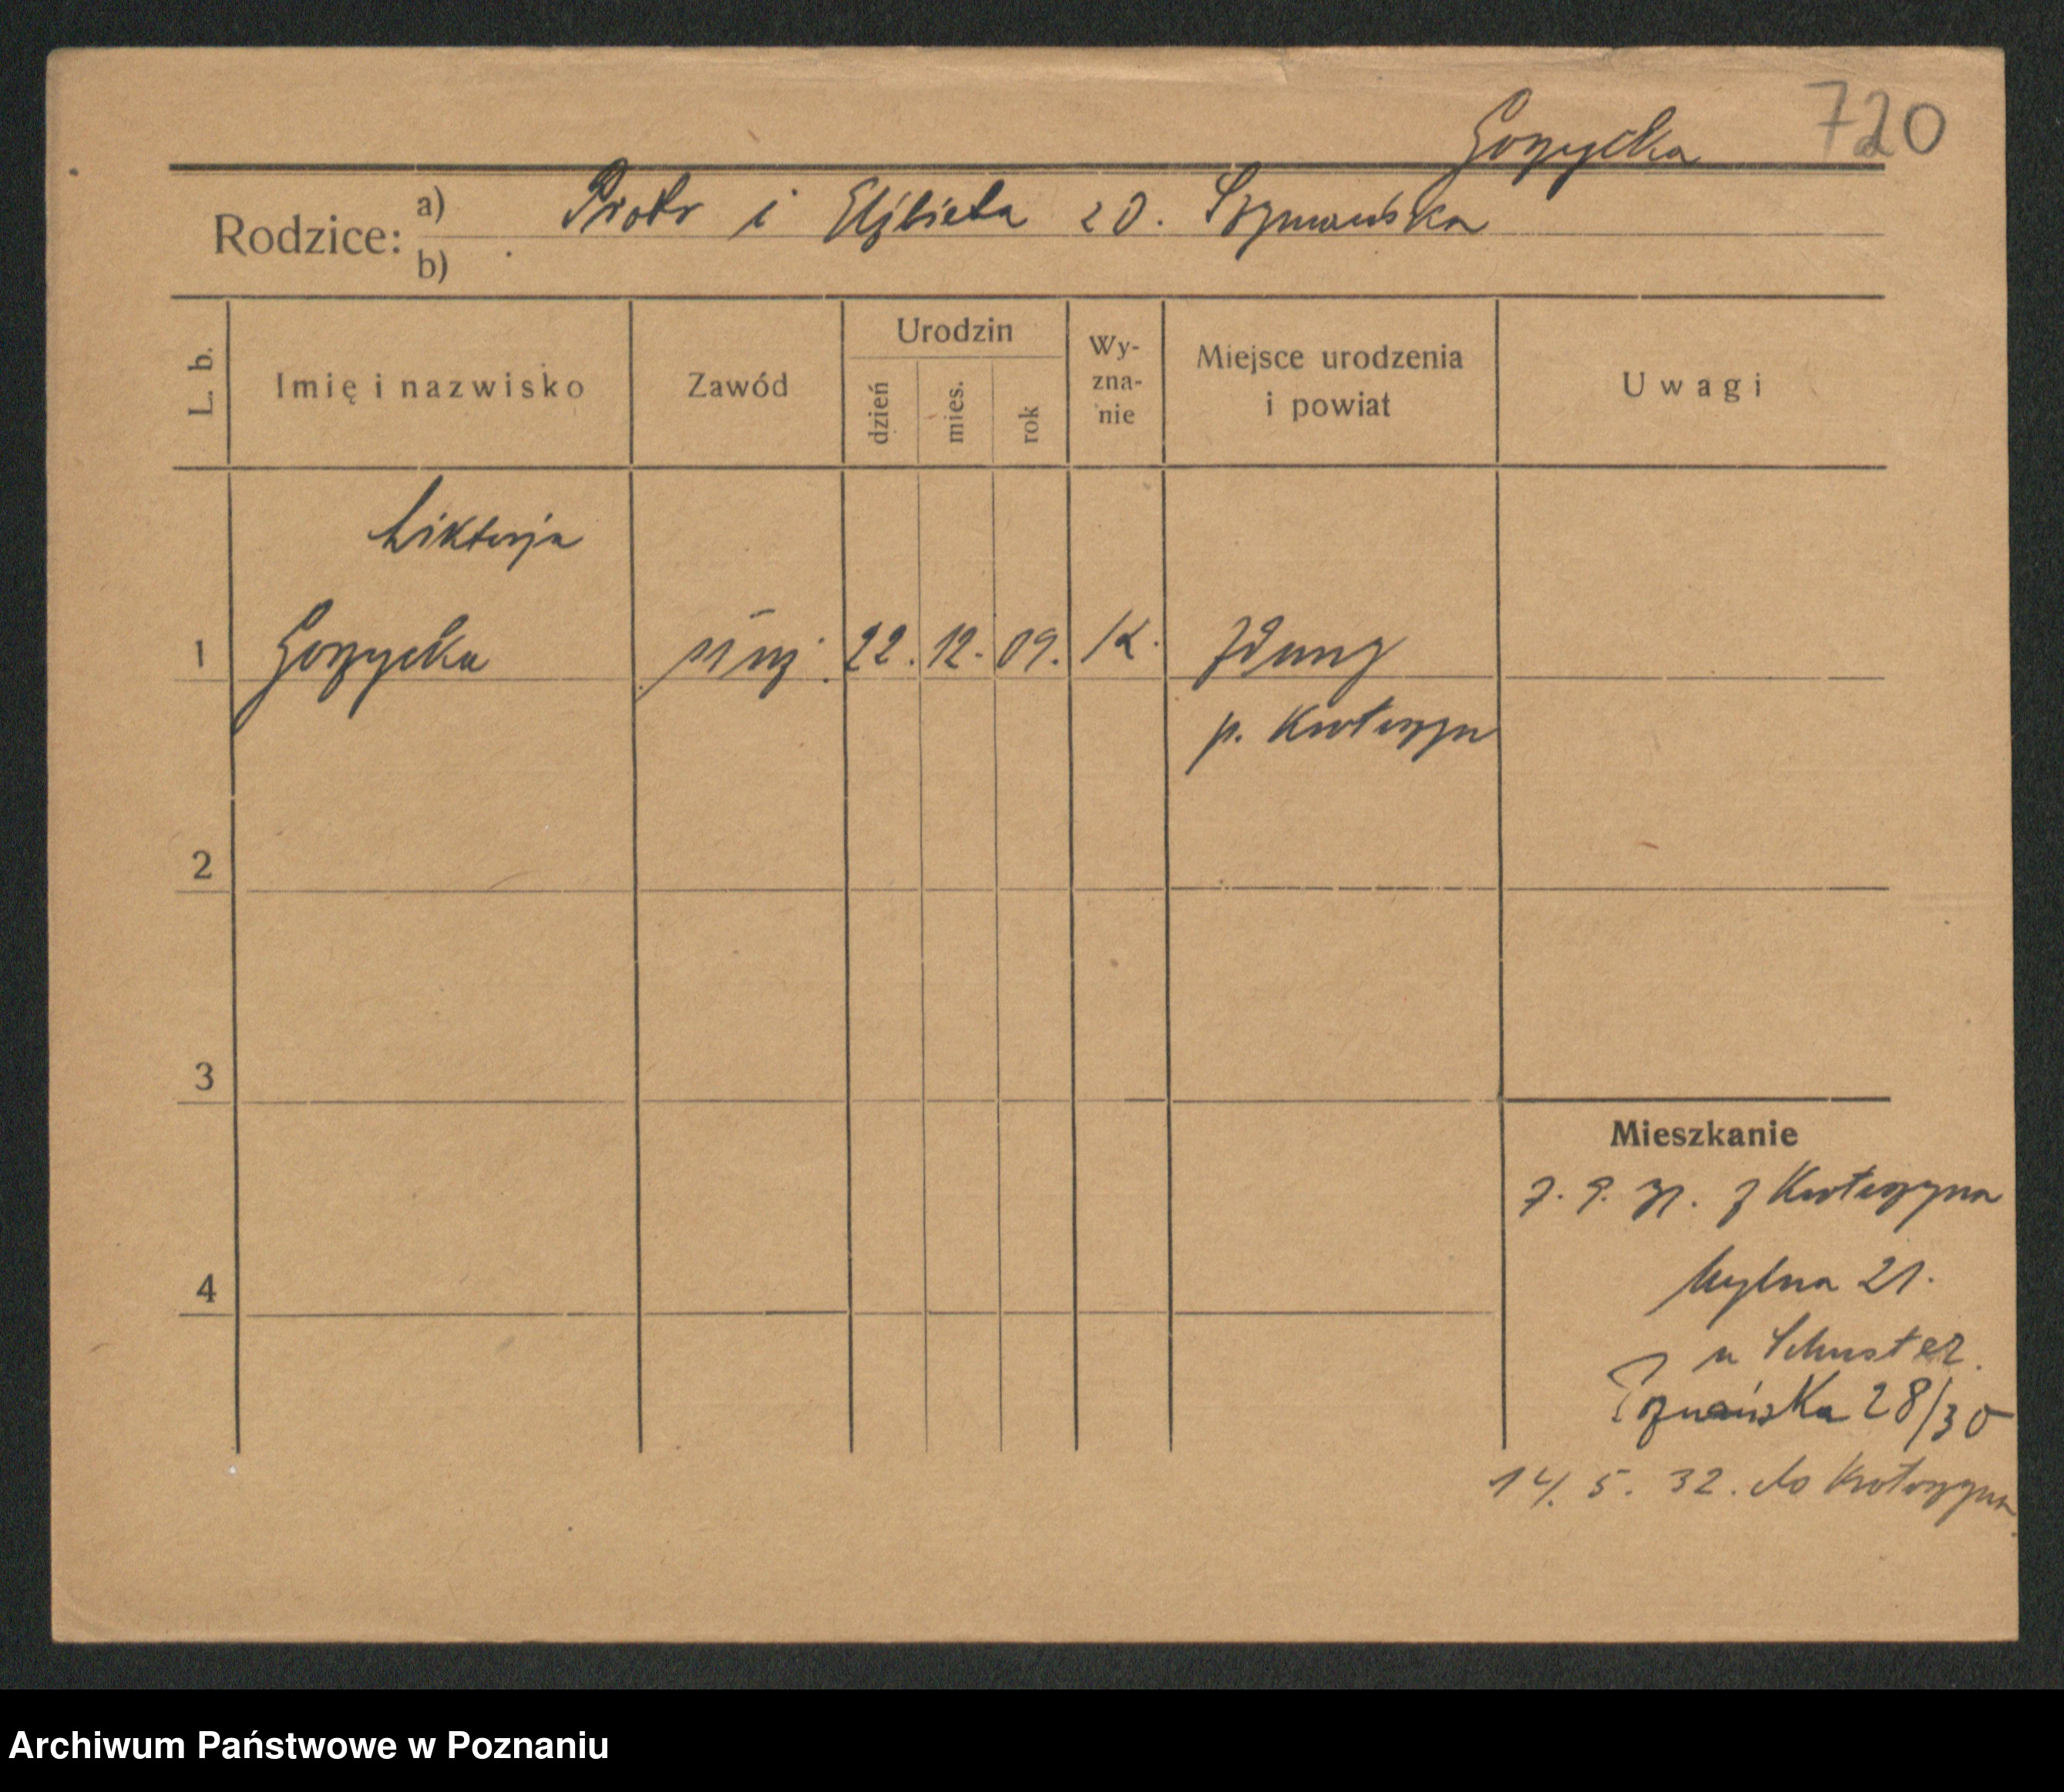 720
Gorzycka
Rodzice: a) Piotr i Elżbieta zd. Szymańska
b)
L. b.
Imię i nazwisko
Zawód
Urodzin
dzień
mies.
rok
Wy-
zna-
nie
Miejsce urodzenia
i powiat
Uwagi
Wiktorja
1 Gorzycka służ. 22. 12. 09. K. Zduny
p. Krotoszyn
2
3
4
Mieszkanie
7. 9. 31. z Krotoszyna
Mylna 21.
u Schuster.
Poznańska 28/30
14. 5. 32. do Krotoszyna
Archiwum Państwowe w Poznaniu